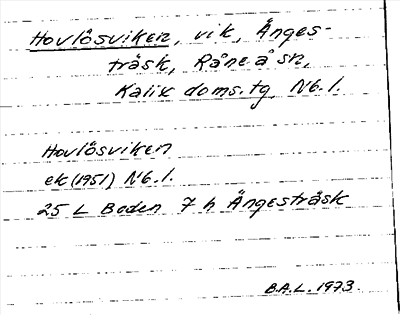 Hovlösviken, vik, Änges-
träsk, Råneå sn,
Kalix doms.tg Nb.l.
Hovlösviken
ek (1951) Nb.l.
25 L Boden 7 h Ängesträsk
B.A.L. 1973.